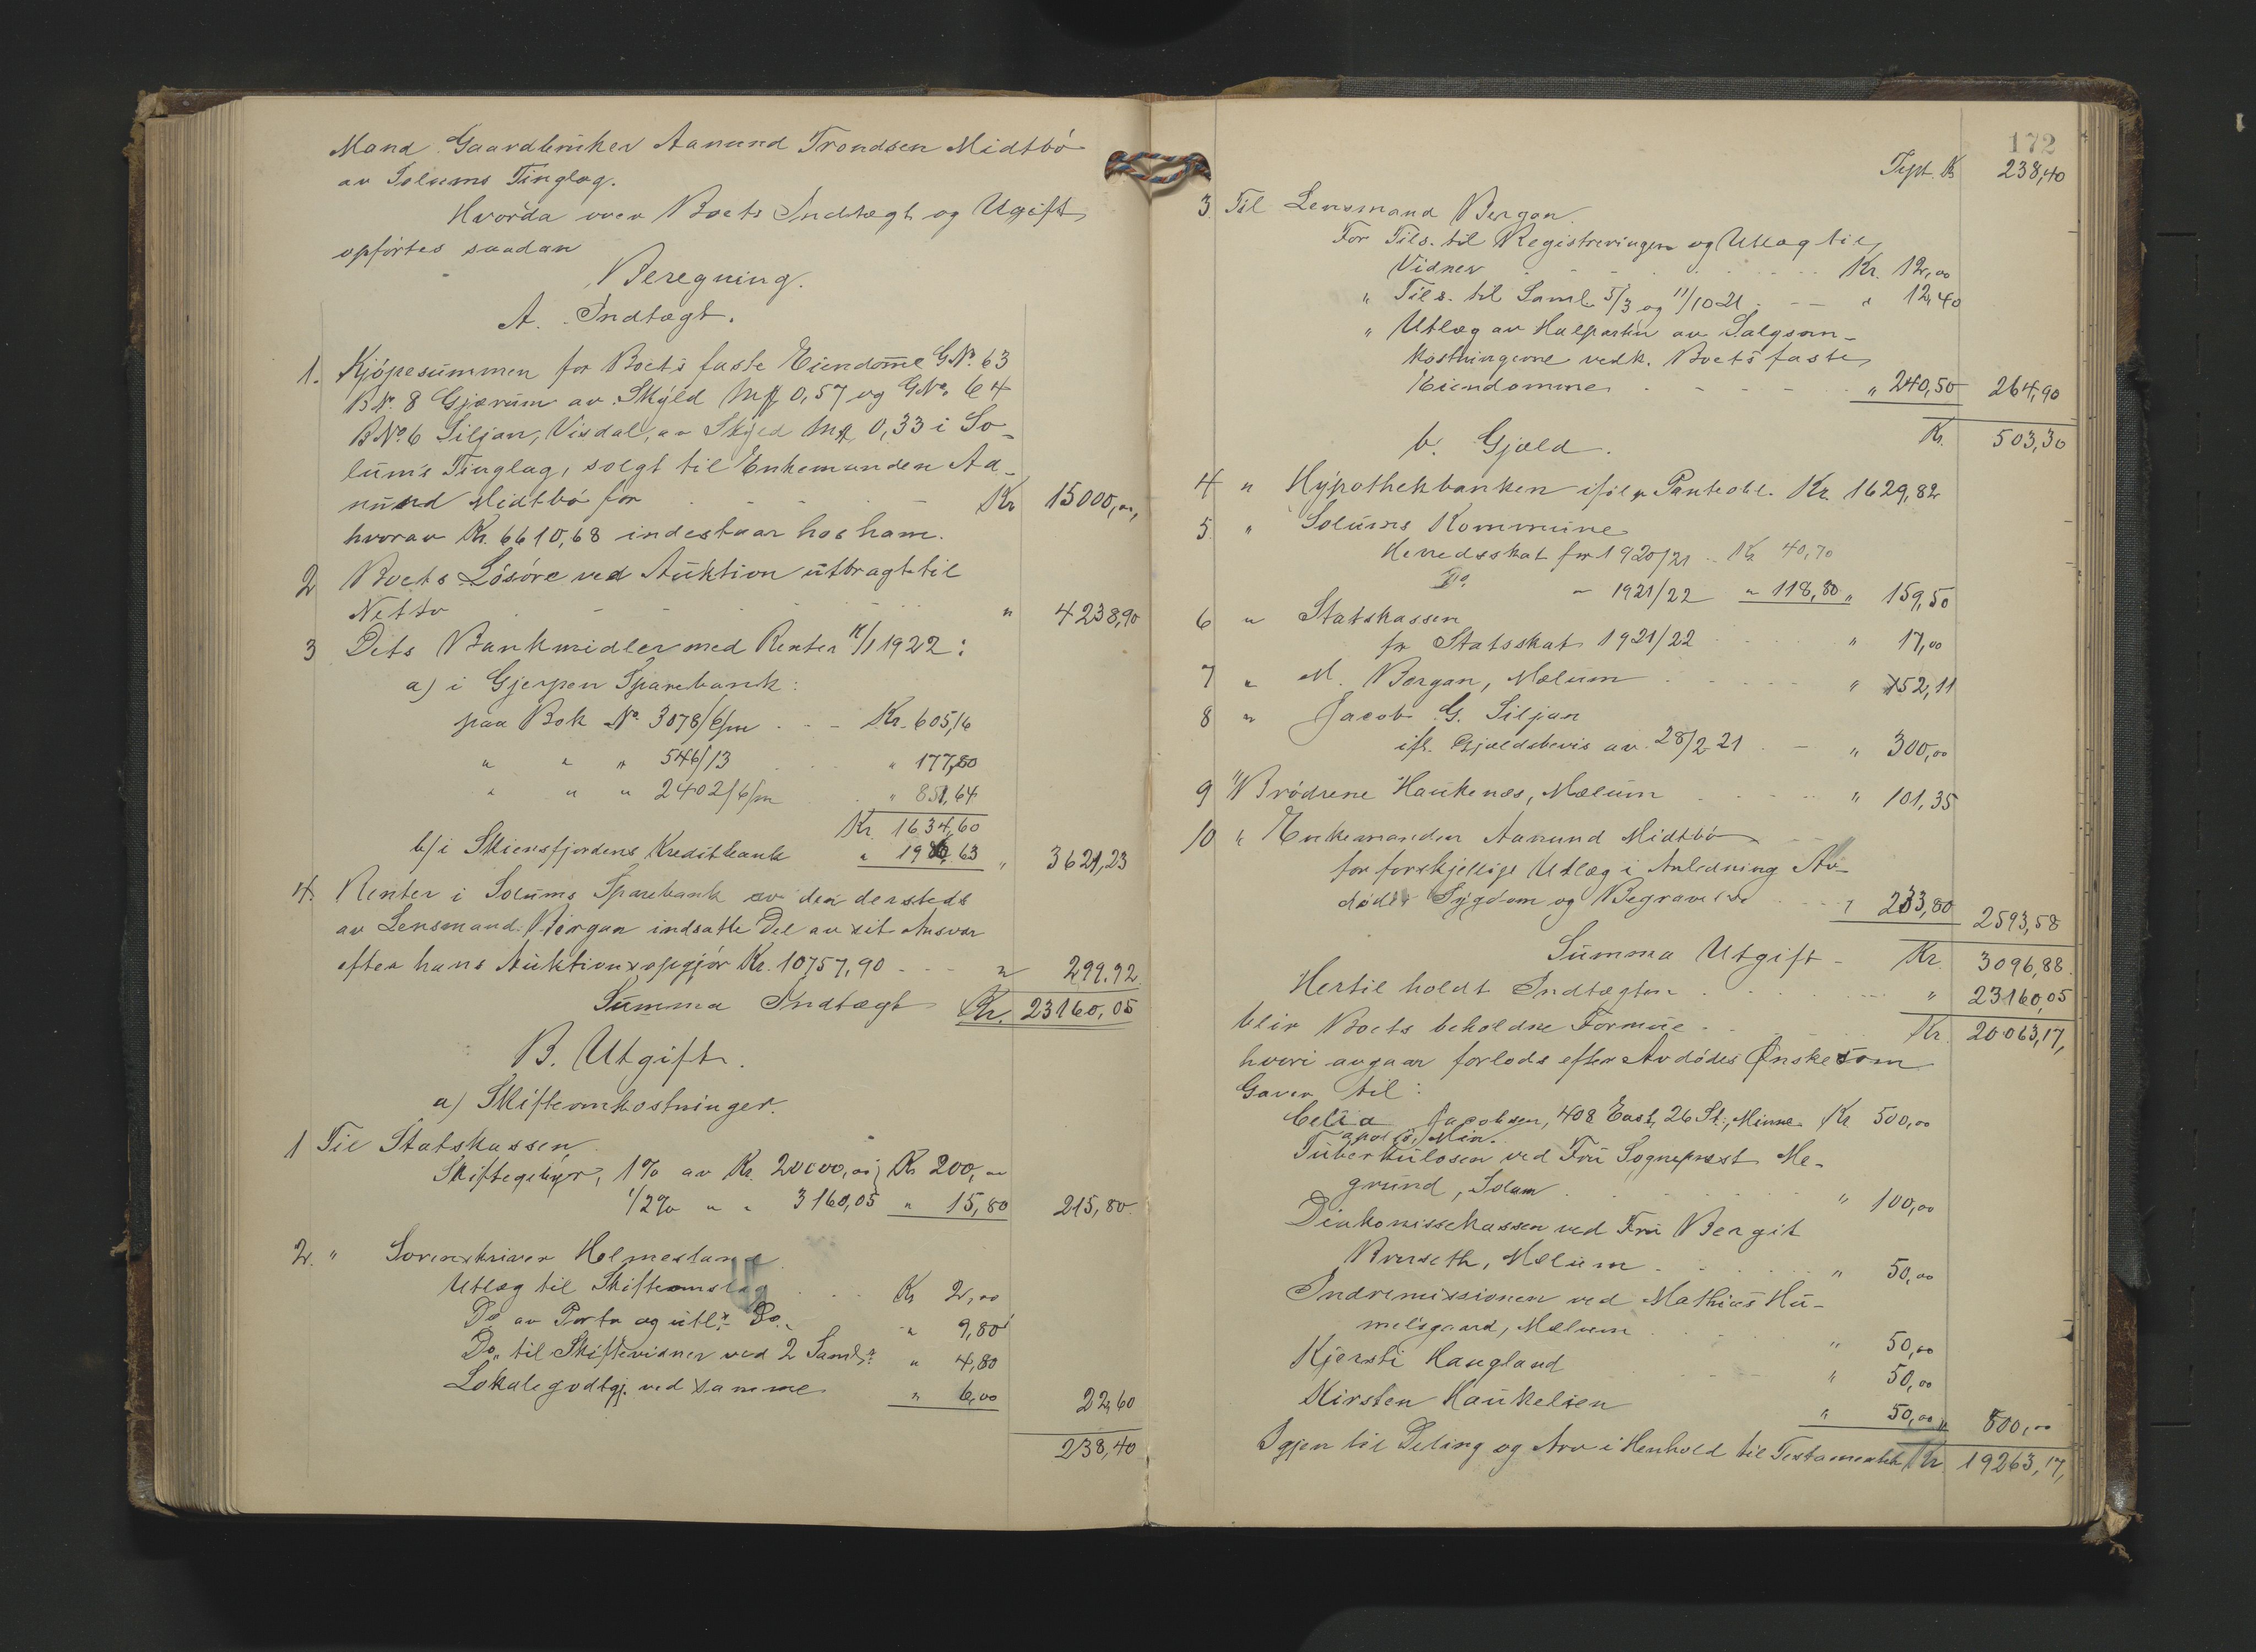 Mand Gaardbruker Aanund Trondsen Midtbö
av Solums Tinglag.
Hvorda over Boets Indtægt og Ugift
opförtes saadan
Beregning.
A. Indtægt.
1. Kjöpesummen for Boets faste Eiendomme GNº 63
BNº 8 Gjærum av Skyld Mk 0,57 og GNº 64
BNº 6 Siljan, Visdal, av Skyld Mk 0,33 i So-
lum's Tinglag, solgt til Enkemanden Aa-
nund Midtbö for Kr 15000,00,
hvorav Kr. 6610,68 indestaar hos ham.
2 Boets Lösöre ved Auktion utbragt til
Netto " 4238,90
3 Dets Bankmidler med Renter 11/1 1922:
a) i Gjerpen Sparebank:
paa Bok Nº 3078/6/m Kr. 605,16
" " " 546/13 " 177,80
" " " 2402/6/m " 851,64
Kr. 1634,60
b/i Skiensfjordens Kreditbank " 1986,63 " 3621,23
4. Renter i Solums Sparebank av den dersteds
av Lensmand Bergan indsatte Del av sit Ansvar
efter hans Auktionsopgjör Kr. 10757,90 " 299,92
Summa Indtægt Kr. 23160,05
B. Utgift.
a) Skifteomkostninger.
1 Til Statskassen
Skiftegebyr, 1% av Kr. 20000,00; Kr 200,00
1/2% " " 3160,05 " 15,80 215,80
2. " Sorenskriver Helmestand
Utlæg til Skifteomslag Kr 2,00
Do av Porto og utl. Do. " 9,80
Do. til Skiftevidner ved 2 Saml.r " 4,80
Lokalegodtgj. ved samme " 6,00 22,60
238,40
172
Tpt. Kr 238,40
3 Til Lensmand Bergan.
For Tils. til Registreringen og Utlæg til
Vidner Kr. 12,00
" Tils. til Saml. 5/3 og 11/10 21 " 12,40
" Utlæg av Halparten av Salgsom-
kostningerne vedk. Boets faste
Eiendomme " 240,50 264,90
Kr. 503,30
b. Gjæld.
4 " Hypothekbanken ifölg Panteobl. Kr. 1629,82
5. " Solums Kommune
Herredsskat for 1920/21 Kr 40,70
Do. - 1921/22 " 118,80 " 159,50
6 " Statskassen
for Statsskat 1921/22 " 17,00
7 " M. Bergan, Mælum " 152,11
8 " Jacob G. Siljan
ifl. Gjældsbevis av 28/2 21 " 300,00
9 " Brödrene Haukenæs, Mælum " 101,35
10 " Enkemanden Aanund Midtbö
for forskjellige Utlæg i Anledning Av-
dödes Sygdom og Begravelse " 233,80 2593,58
Summa Utgift Kr. 3096,88
Hertil holdt Indtægten " 23160,05
blir Boets beholdne Formue Kr. 20063,17,
hvori avgaar forlods efter Avdödes Ønske som
Gaver til:
Celia Jacobsen, 408 East, 26 St., Minne- Kr 500,00
apolis, Min.
Tuberkulosen ved Fru Sogneprest Me-
grund, Solum " 100,00
Diakonissekassen ved Fru Bergit
Bruseth, Mælum " 50,00
Indremissionen ved Mathias Hu-
melsgaard, Mælum " 50,00
Kjersti Haugland " 50,00
Kirsten Haukelien " 50,00 " 800,00
Igjen til Deling og Arv i Henhold til Testamentet Kr 19263,17,